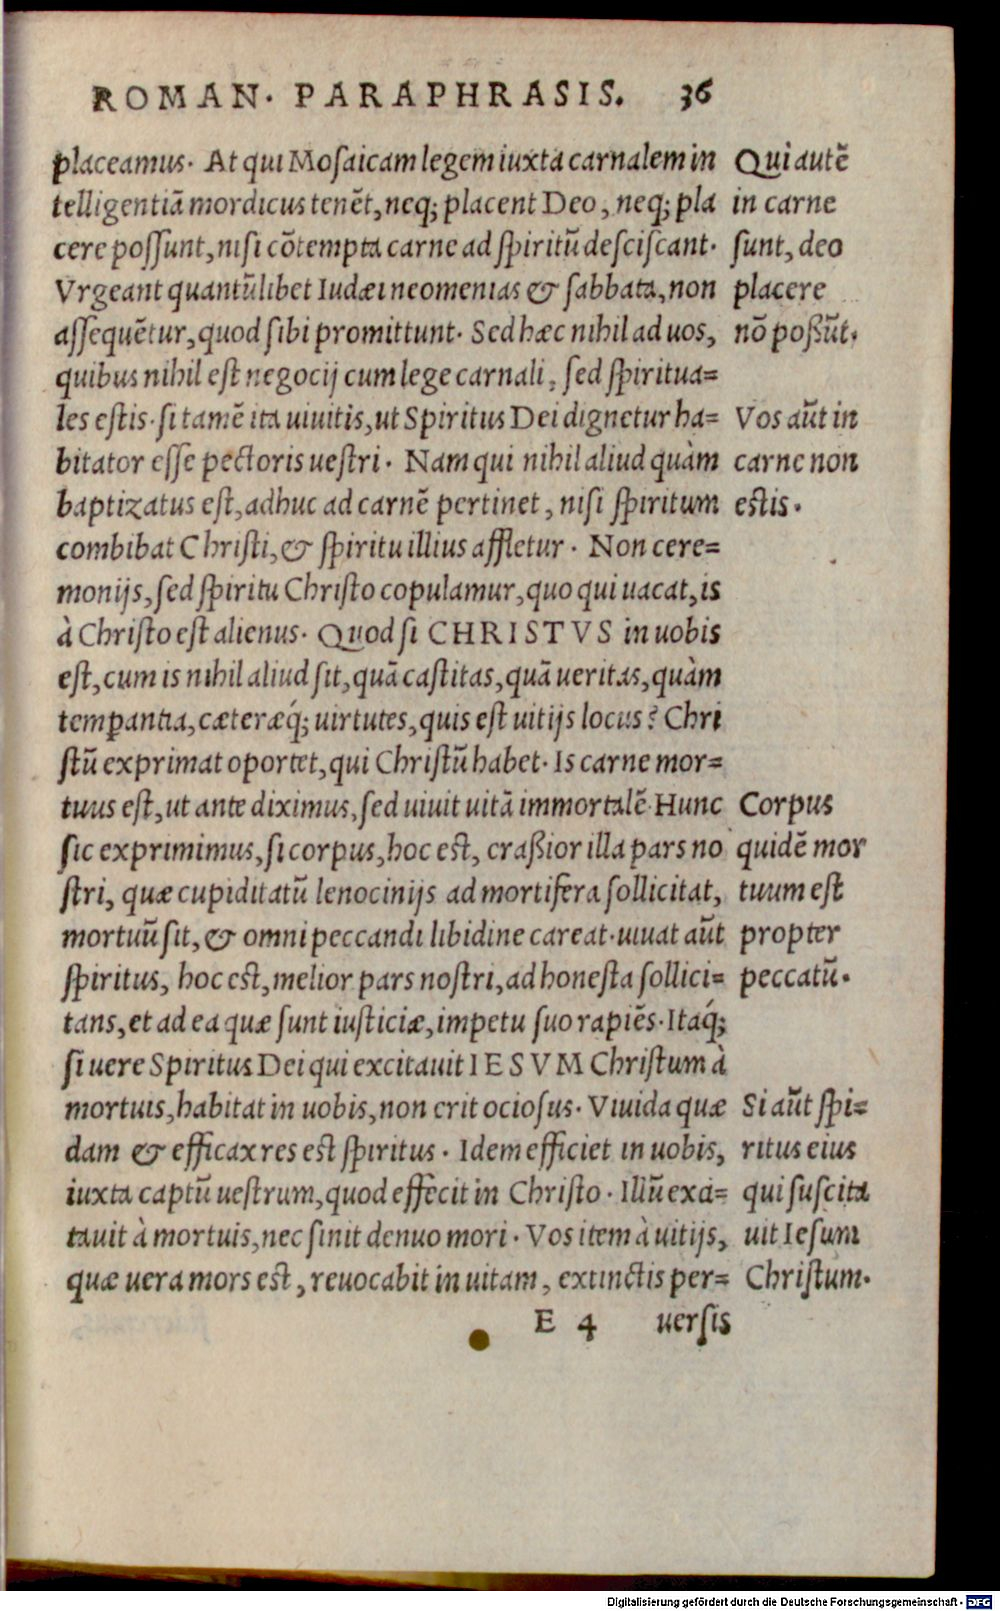 ROMAN. PARAPHRASIS. 36
placeamus. At qui Mosaicam legem iuxta carnalem in
telligentiã mordicus tenẽt, neq; placent Deo, neq; pla
cere possunt, nisi cõtempta carne ad spiritũ desciscant.
Vrgeant quantũlibet Iudæi neomenias & sabbata, non
assequẽtur, quod sibi promittunt. Sed hæc nihil ad uos,
quibus nihil est negocij cum lege carnali, sed spiritua=
les estis. si tamẽ ita uiuitis, ut Spiritus Dei dignetur ha=
bitator esse pectoris uestri. Nam qui nihil aliud quàm
baptizatus est, adhuc ad carnẽ pertinet, nisi spiritum
combibat Christi, & spiritu illius affletur. Non cere=
monijs, sed spiritu Christo copulamur, quo qui uacat, is
à Christo est alienus. Quod si CHRISTVS in uobis
est, cum is nihil aliud sit, quã castitas, quã ueritas, quàm
temperantia, cæteræq́; uirtutes, quis est uitijs locus? Chri
stũ exprimat oportet, qui Christũ habet. Is carne mor=
tuus est, ut ante diximus, sed uiuit uitã immortalẽ. Hunc
sic exprimimus, si corpus, hoc est, craßior illa pars no
stri, quæ cupiditatũ lenocinijs ad mortifera sollicitat,
mortuũ sit, & omni peccandi libidine careat. uiuat aũt
spiritus, hoc est, melior pars nostri, ad honesta sollici=
tans, et ad ea quæ sunt iusticiæ, impetu suo rapiẽs. Itaq́;
si uere Spiritus Dei qui excitauit IESVM Christum à
mortuis, habitat in uobis, non erit ociosus. Viuida quæ
dam & efficax res est spiritus. Idem efficiet in uobis,
iuxta captũ uestrum, quod effecit in Christo. Illũ exci=
tauit à mortuis, nec sinit denuo mori. Vos item à uitijs,
quæ uera mors est, reuocabit in uitam, extinctis per=
E 4 uersis
Qui autẽ
in carne
sunt, deo
placere
nõ poßũt.
Vos aũt in
carne non
estis.
Corpus
quidẽ mor
tuum est
propter
peccatũ.
Si aũt spi=
ritus eius
qui suscita
uit Iesum
Christum.
Digitalisierung gefördert durch die Deutsche Forschungsgemeinschaft - DFG